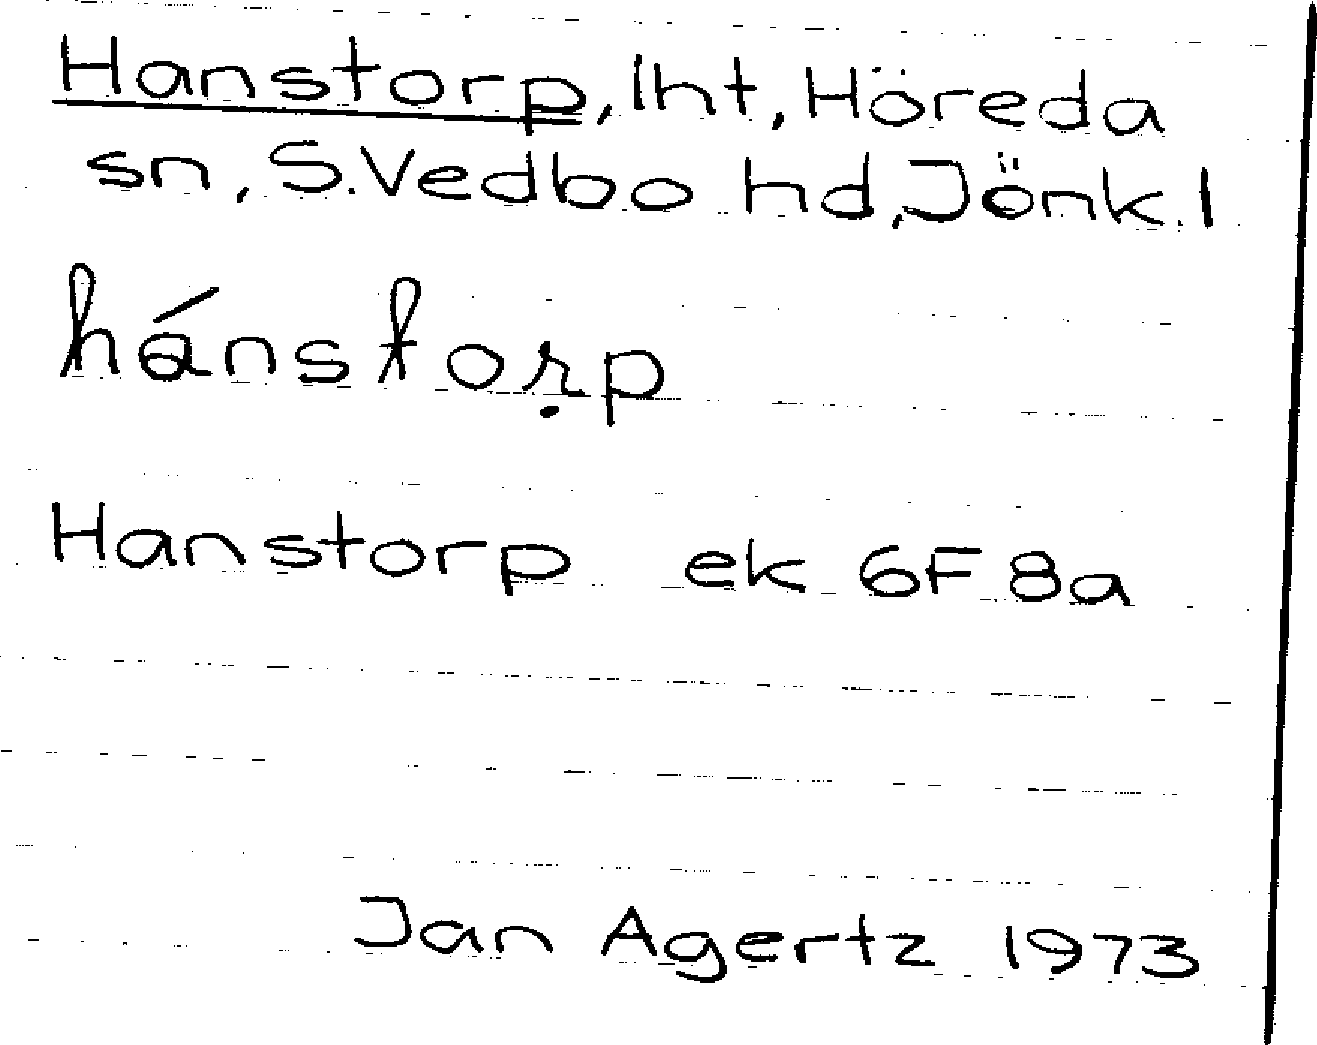 Hanstorp, lht, Höreda
sn, S.Vedbo hd, Jönk. l
hánstorp
Hanstorp ek 6F 8a
Jan Agertz 1973